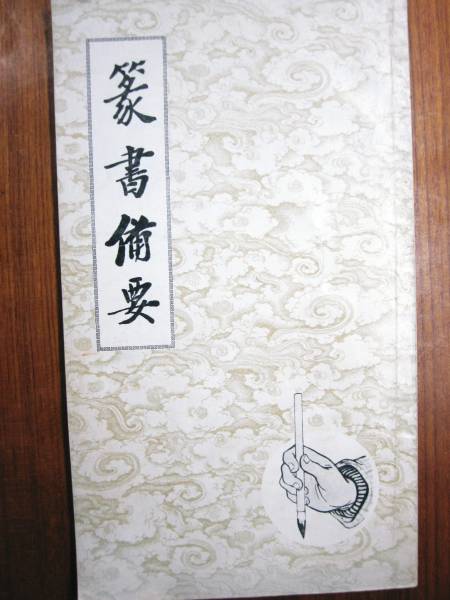 篆書備要